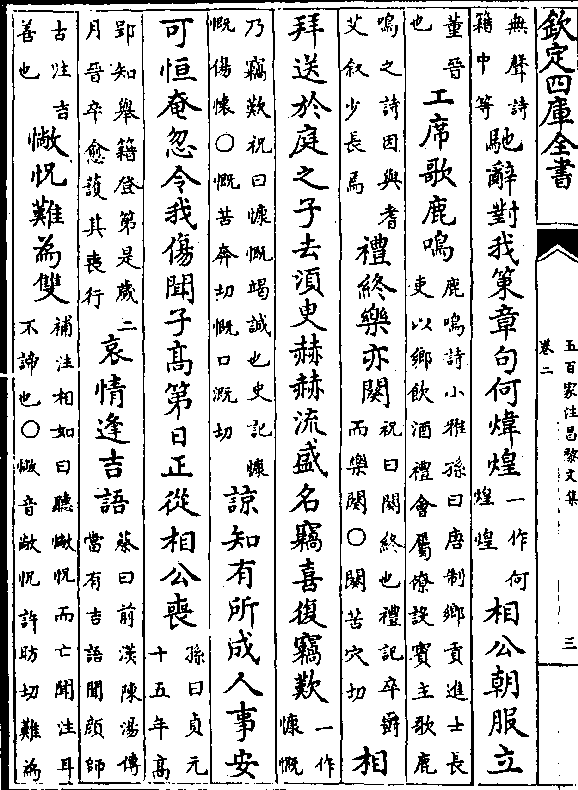 欽定四庫全書
五百家注昌黎文集
卷二
三
無聲詩
籍中等
馳辭對我策章句何煒煌
一作何
煌煌
相公朝服立
董晉
也
工席歌鹿鳴
鹿鳴詩小雅孫曰唐制鄉貢進士長
吏以鄉飲酒禮會屬僚設賓主歌鹿
鳴之詩因與耆
艾叙少長焉
禮終樂亦闋
祝曰闋終也禮記卒爵
而樂闋○闋苦穴切
相
拜送於庭之子去須臾赫赫流盛名竊喜復竊歎
一作
慷慨
乃竊歎祝曰慷慨竭誠也史記慷
慨傷懷○慨苦莽切慨口溉切
諒知有所成人事安
可恒奄忽令我傷聞子高第日正從相公喪
孫曰貞元
十五年高
郢知舉籍登第是歲二
月晉卒愈護其喪行
哀情逢吉語
蔡曰前漢陳湯傳
當有吉語聞顔師
古注吉
善也
惝怳難為雙
補注相如曰聽惝怳而亡聞注耳
不諦也○惝音敞怳許昉切難為